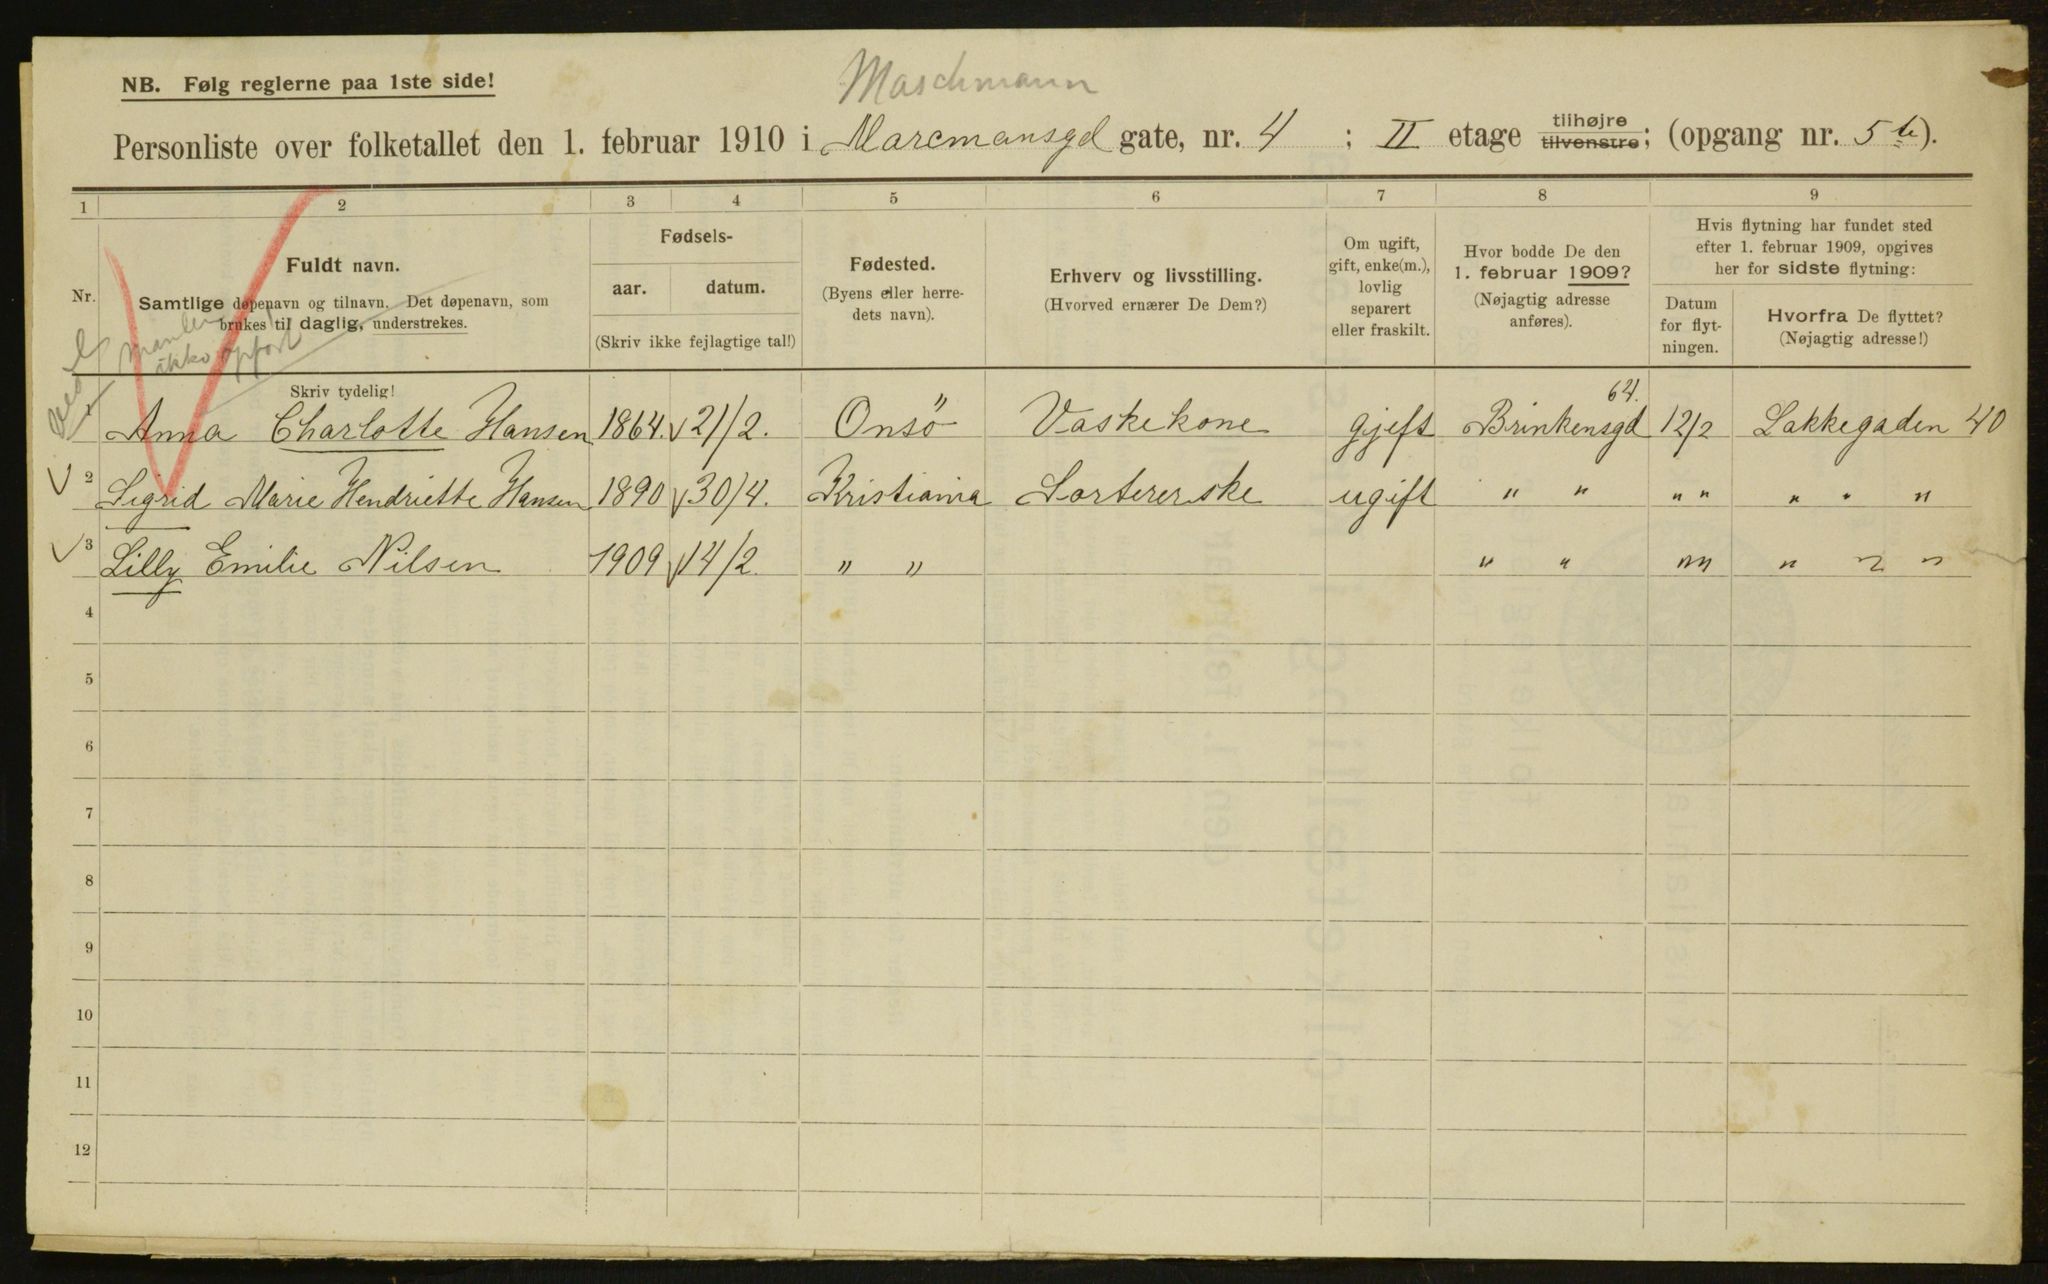 Maschmann
NB. Følg reglerne paa 1ste side!
Personliste over folketallet den 1. februar 1910 i Marcmansgd gate, nr. 4 ; II etage tilhøjre tilvenstre; (opgang nr. 5te).
1 2 3 4 5 6 7 8 9
Nr.
Fuldt navn.
Samtlige døpenavn og tilnavn. Det døpenavn, som
brukes til daglig, understrekes.
Skriv tydelig!
Fødsels-
aar. datum.
(Skriv ikke fejlagtige tal!)
Fødested.
(Byens eller herre-
dets navn).
Erhverv og livsstilling.
(Hvorved ernærer De Dem?)
Om ugift,
gift, enke(m.),
lovlig
separert
eller fraskilt.
Hvor bodde De den
1. februar 1909?
(Nøjagtig adresse
anføres).
Hvis flytning har fundet sted
efter 1. februar 1909, opgives
her for sidste flytning:
Datum
for flyt-
ningen.
Hvorfra De flyttet?
(Nøjagtig adresse!)
manden
ikke opført
1 Anna Charlotte Hansen 1864. 21/2. Onsö Vaskekone gjeft Brinkensgd 64. 12/2 Lakkegaden 40
2 Sigrid Marie Hendriette Hansen 1890 30/4. Kristiania Sortererske ugift " " " " " " "
3 Lilly Emilie Nilsen 1909 14/2. " " " " " " " " "
4
5
6
7
8
9
10
11
12